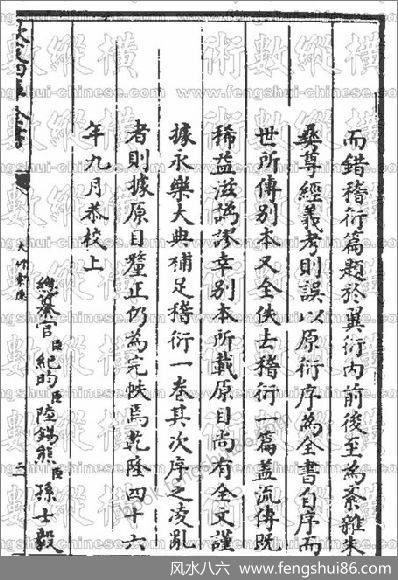 而錯稽衍篇題於翼衍内前後至為紊雜朱
彝尊經義考則誤以原衍序為全書自序而
世所傳别本又全佚去稽衍一篇盖流傳既
稀益滋譌謬幸别本所載原目尚有全文謹
據永樂大典補足稽衍一卷其次序之凌亂
者則據原目釐正仍為完帙焉乾隆四十六
年九月恭校上
總纂官臣紀昀臣陸錫熊臣孫士毅
欽定四庫全書
二
術數縱橫
www.fengshui-chinese.com
风水八六 www.fengshui86.com